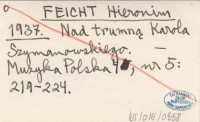 FEICHT Hieronim
1937. Nad trumną Karola
Szymanowskiego. —
Muzyka Polska 4, nr 5:
219-224.